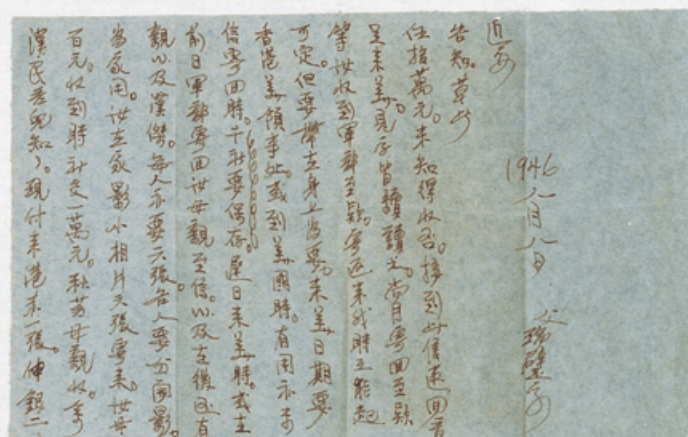 漢民吾兒知。現付来港未一張伸銀二
百元。收到時 交一萬元。秋芳母親收。
為家用。汝在家影小相片六張寄来。汝母
親以及漢傑。每人亦要六張。各人要分開影。
前日軍部寄回汝母親至信。以及支後 有
信寄回時。千祈要保存。遲日来美時。或在
香港美領事处。或到美國時。有用亦未
可定。但要帶在身上為要。来美日期要
等汝收到軍部至款。寄返来我時至能起
呈来美。 續讀 當月寄回至款
伍拾萬元。未知得收否。接到此信速回音
告知。草此
近安
1946 八月八日
父瑞璧字